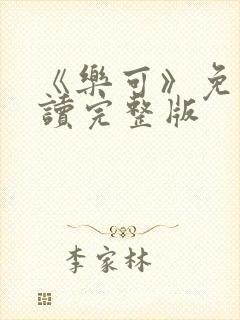 《樂可》免
讀完整版
李家林